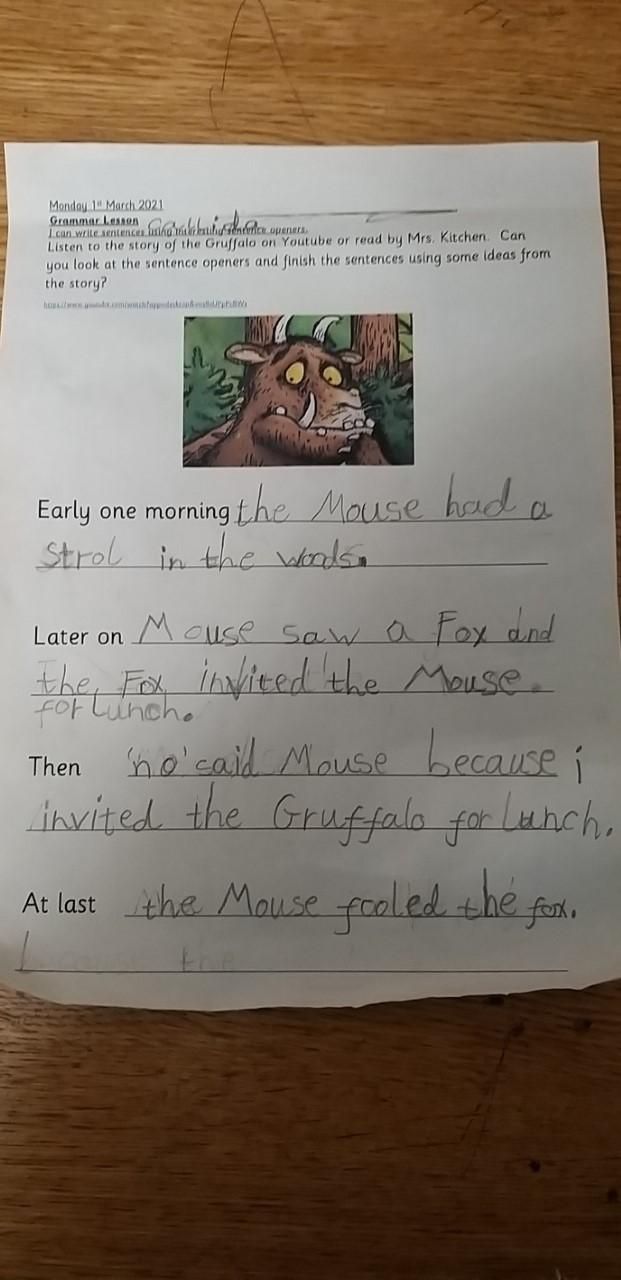 Monday 1st March 2021
Grammar Lesson
I can write sentences using interesting sentence openers.
Listen to the story of the Gruffalo on Youtube or read by Mrs. Kitchen. Can
you look at the sentence openers and finish the sentences using some ideas from
the story?
Early one morning the Mouse had a
Strol in the woods.
Later on Mouse saw a Fox and
the Fox invited the Mouse.
for Lunch.
Then 'no' said Mouse because i
invited the Gruffalo for Lunch.
At last the Mouse fooled the fox.